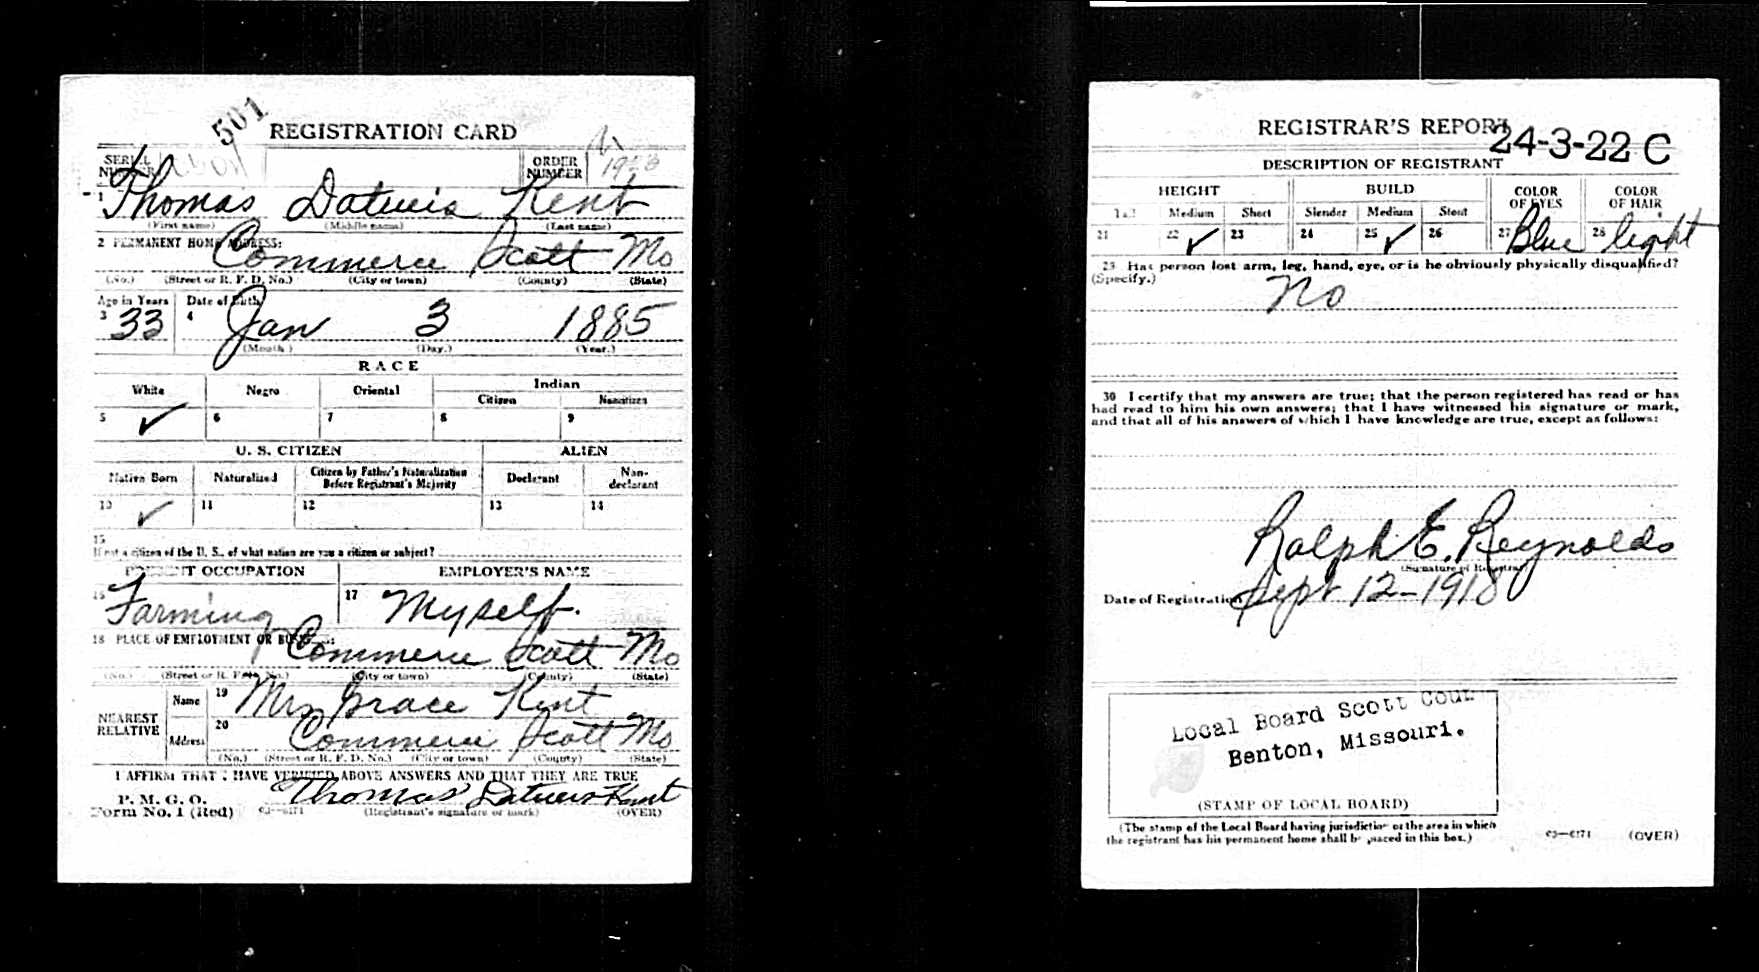 501
REGISTRATION CARD
SERIAL NUMBER
ORDER NUMBER
1 Thomas Kent
(First name) (Middle name) (Last name)
2 PERMANENT HOME ADDRESS:
Commerce Scott Mo
(No.) (Street or R. F. D. No.) (City or town) (County) (State)
Age in Years Date of Birth
3 33 4 Jan 3 1885
(Month.) (Day.) (Year.)
RACE
White Negro Oriental Indian
Citizen Noncitizen
5 ✓ 6 7 8 9
U. S. CITIZEN ALIEN
Native Born Naturalized Citizen by Father's Naturalization Before Registrant's Majority Declarant Non-declarant
10 ✓ 11 12 13 14
15
If not a citizen of the U. S., of what nation are you a citizen or subject?
PRESENT OCCUPATION EMPLOYER'S NAME
16 Farming 17 Myself.
18 PLACE OF EMPLOYMENT OR BUSINESS:
Commerce Scott Mo
(No.) (Street or R. F. D. No.) (City or town) (County) (State)
NEAREST RELATIVE
Name 19 Mrs Grace Kent
Address 20 Commerce Scott Mo
(No.) (Street or R. F. D. No.) (City or town) (County) (State)
I AFFIRM THAT I HAVE VERIFIED ABOVE ANSWERS AND THAT THEY ARE TRUE
P. M. G. O.
Form No. 1 (Red) 03—6171 Thomas Kent
(Registrant's signature or mark) (OVER)
REGISTRAR'S REPORT
24-3-22 C
DESCRIPTION OF REGISTRANT
HEIGHT BUILD COLOR OF EYES COLOR OF HAIR
Tall Medium Short Slender Medium Stout
21 22 ✓ 23 24 25 ✓ 26 27 Blue 28 light
29 Has person lost arm, leg, hand, eye, or is he obviously physically disqualified?
(Specify.) no
30 I certify that my answers are true; that the person registered has read or has
had read to him his own answers; that I have witnessed his signature or mark,
and that all of his answers of which I have knowledge are true, except as follows:
Ralph E. Reynolds
(Signature of Registrar)
Date of Registration Sept 12-1918
Local Board Scott Coun
Benton, Missouri.
(STAMP OF LOCAL BOARD)
(The stamp of the Local Board having jurisdiction of the area in which
the registrant has his permanent home shall be placed in this box.)
03—6171 (OVER)